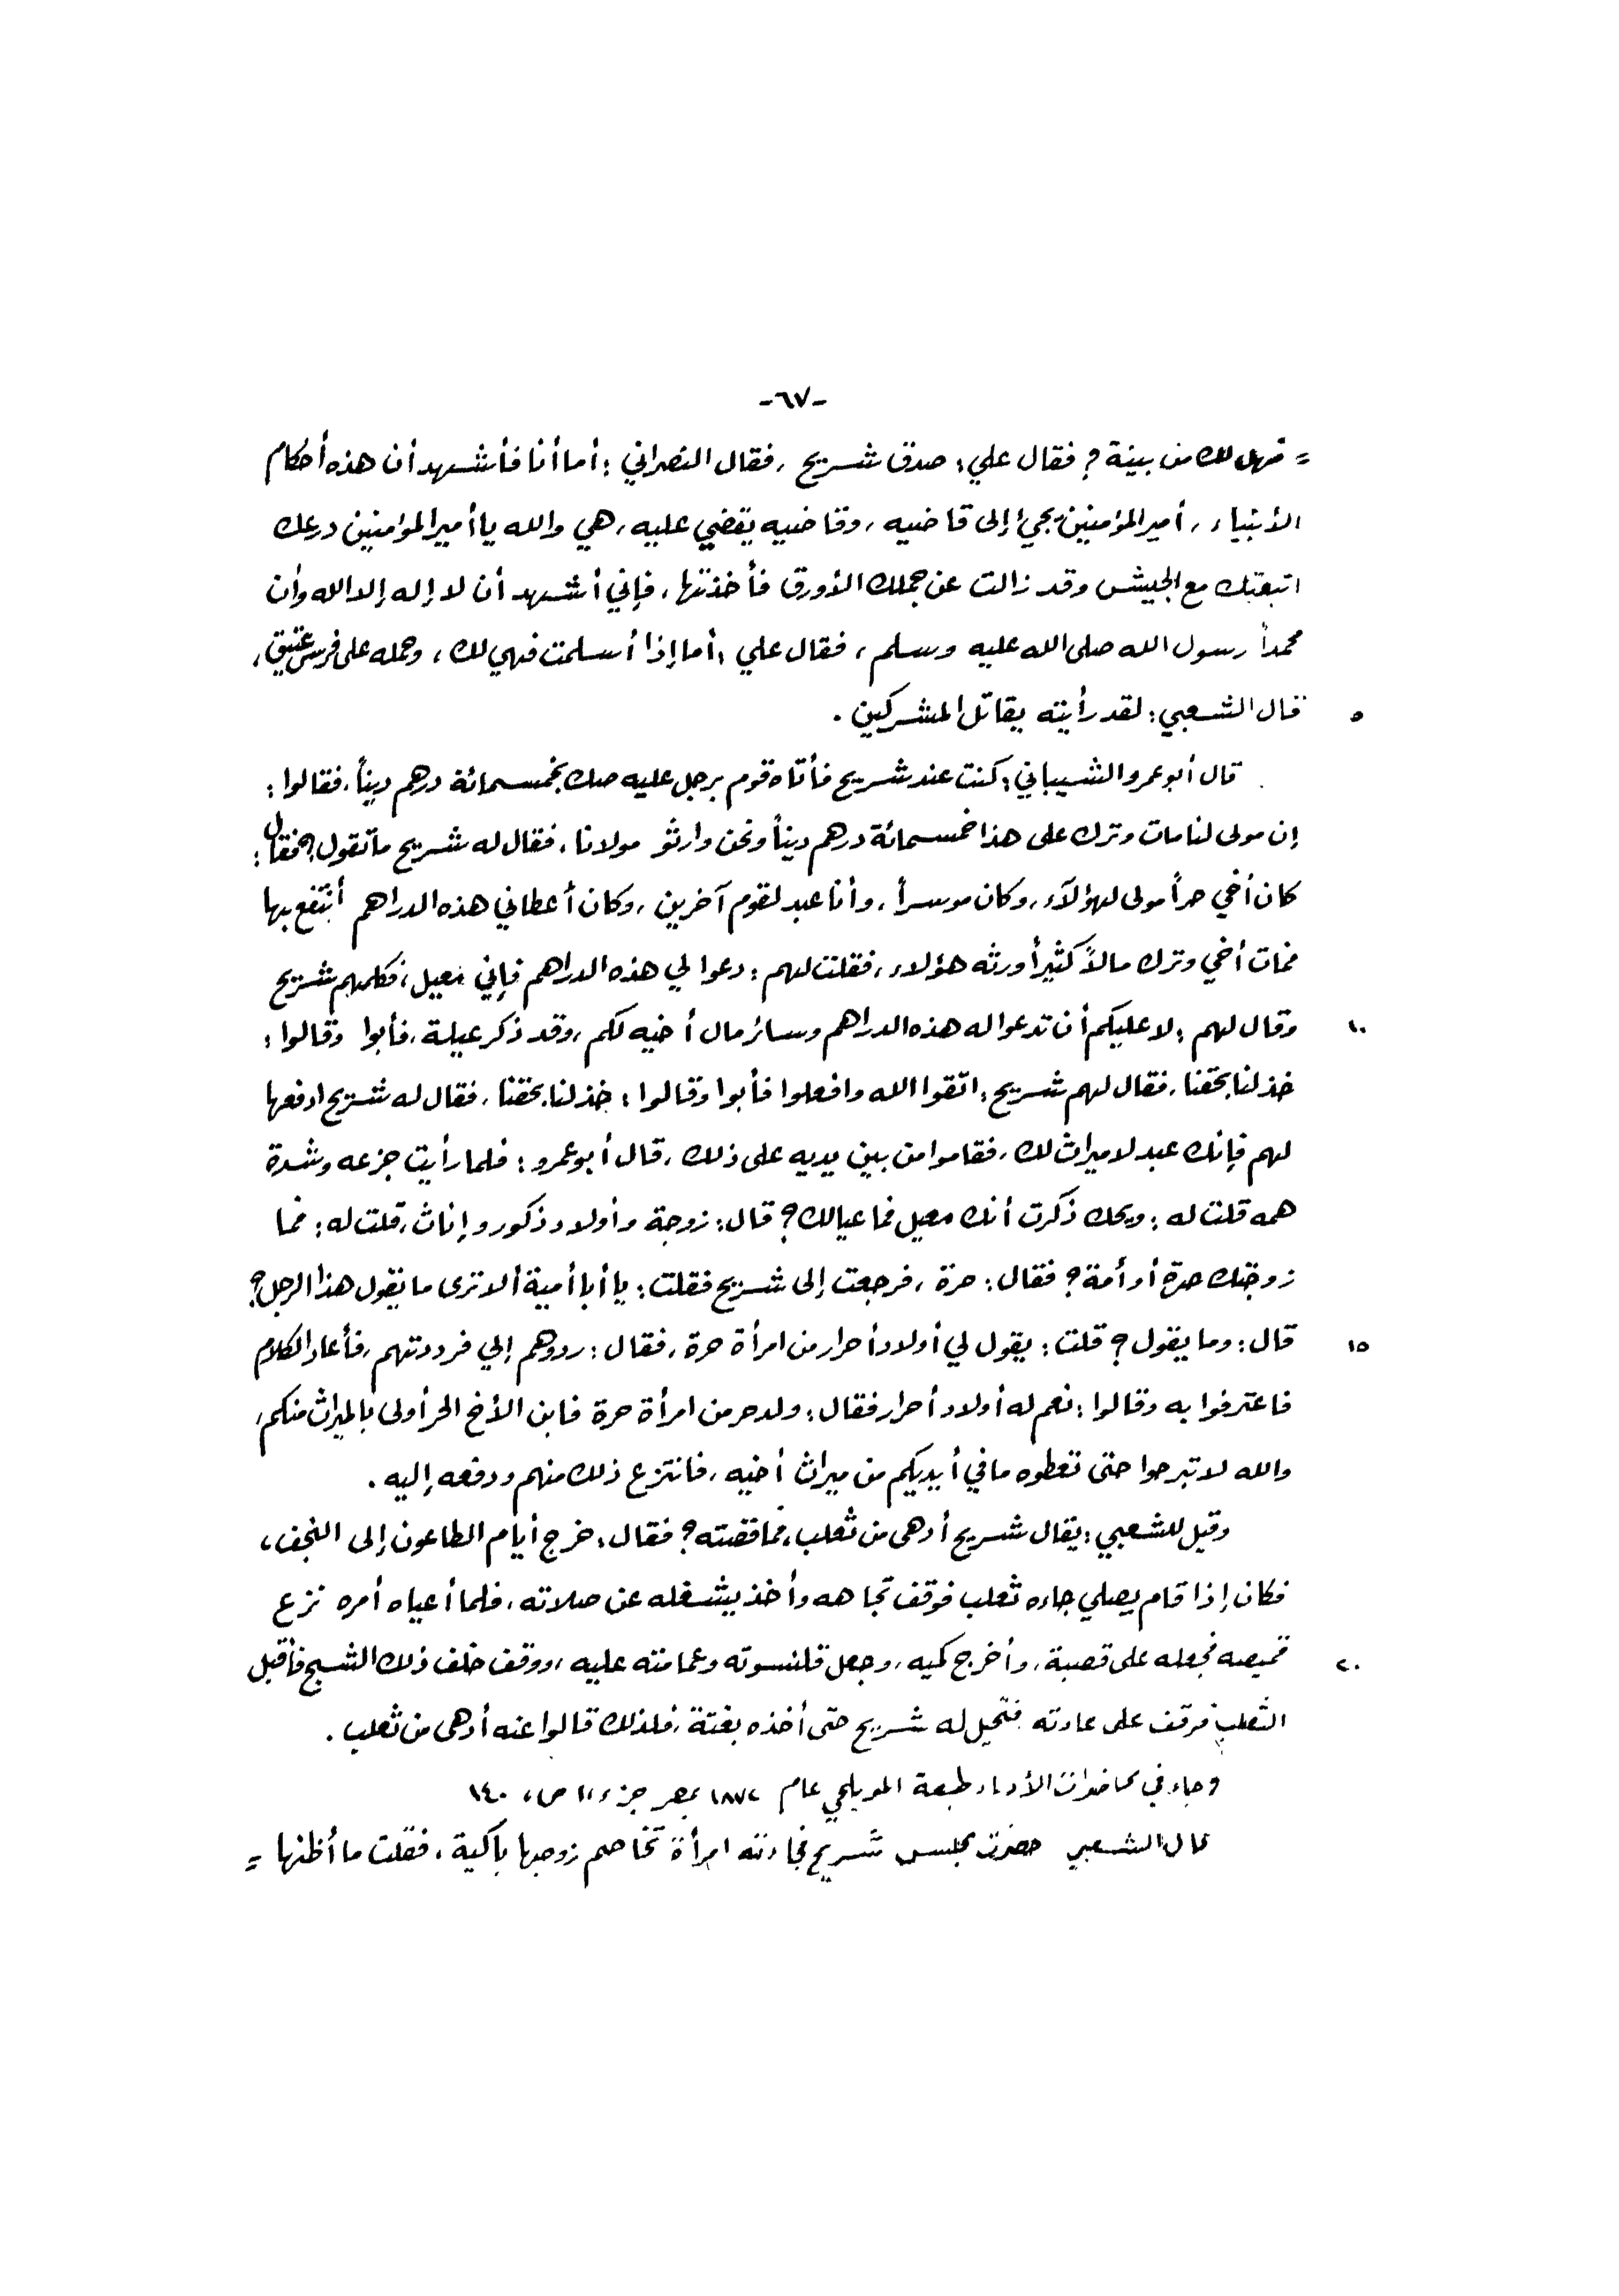 -٦٧-
= فهل لك من بينة ؟ فقال علي : صدق شريح ، فقال النصراني : أما أنا فأشهد أن هذه أحكام
الأنبياء ، أمير المؤمنين يجيئ إلى قاضيه ، وقاضيه يقضي عليه ، هي والله يا أمير المؤمنين درعك
اتبعتك مع الجيش وقد زالت عن جملك الأورق فأخذتها ، فإني أشهد أن لا إله إلا الله وأن
محمداً رسول الله صلى الله عليه وسلم ، فقال علي : أما إذا أسلمت فهي لك ، وحمله على فرس عتيق ،
٥ قال الشعبي : لقد رأيته يقاتل المشركين .
قال أبو عمرو الشيباني : كنت عند شريح فأتاه قوم برجل عليه صك بخمسمائة درهم ديناً ، فقالوا :
إن مولى لنا مات وترك على هذا خمسمائة درهم ديناً ونحن وارثو مولانا ، فقال له شريح ما تقول ؟ فقال :
كان أخي حراً مولى لهؤلآء ، وكان موسراً ، وأنا عبد لقوم آخرين ، وكان أعطاني هذه الدراهم أنتفع بها
فمات أخي وترك مالاً كثيراً ورثه هؤلاء ، فقلت لهم : دعوا لي هذه الدراهم فإني معيل ، فكلمهم شريح
١٠ وقال لهم : لا عليكم أن تدعوا له هذه الدراهم وسائر مال أخيه لكم ، وقد ذكر عيلة ، فأبوا وقالوا :
خذ لنا بحقنا ، فقال لهم شريح : اتقوا الله وافعلوا فأبوا وقالوا : خذ لنا بحقنا ، فقال له شريح ادفعها
لهم فإنك عبد لا ميراث لك ، فقاموا من بين يديه على ذلك ، قال أبو عمرو : فلما رأيت جزعه وشدة
همه قلت له : ويحك ذكرت أنك معيل فما عيالك ؟ قال : زوجة وأولاد ذكور وإناث ، قلت له : فما
زوجتك حرة أو أمة ؟ فقال : حرة ، فرجعت إلى شريح فقلت : يا أبا أمية ألا ترى ما يقول هذا الرجل ؟
١٥ قال : وما يقول ؟ قلت : يقول لي أولاد أحرار من امرأة حرة ، فقال : ردوهم إلي فرددتهم ، فأعاد الكلام
فاعترفوا به وقالوا : نعم له أولاد أحرار فقال : ولد حر من امرأة حرة فابن الأخ الحر أولى بالميراث منكم ،
والله لا تبرحوا حتى تعطوه ما في أيديكم من ميراث أخيه ، فانتزع ذلك منهم ودفعه إليه .
وقيل للشعبي : يقال شريح أدهى من ثعلب ، فما قصته ؟ فقال : خرج أيام الطاعون إلى النجف ،
فكان إذا قام يصلي جاءه ثعلب فوقف تجاهه وأخذ يشغله عن صلاته ، فلما أعياه أمره نزع
٢٠ قميصه فجعله على قصبة ، وأخرج كميه ، وجعل قلنسوته وعمامته عليه ، ووقف خلف ذلك الشبح فأقبل
الثعلب فوقف على عادته فتحيل له شريح حتى أخذه بغتة ، فلذلك قالوا عنه أدهى من ثعلب .
وجاء في محاضرات الأدباء طبعة المويلحي عام ١٨٧٢ بمصر جزء ١ ص ١٤٠
قال الشعبي حضرت مجلس شريح فجاءته امرأة تخاصم زوجها باكية ، فقلت ما أظنها =